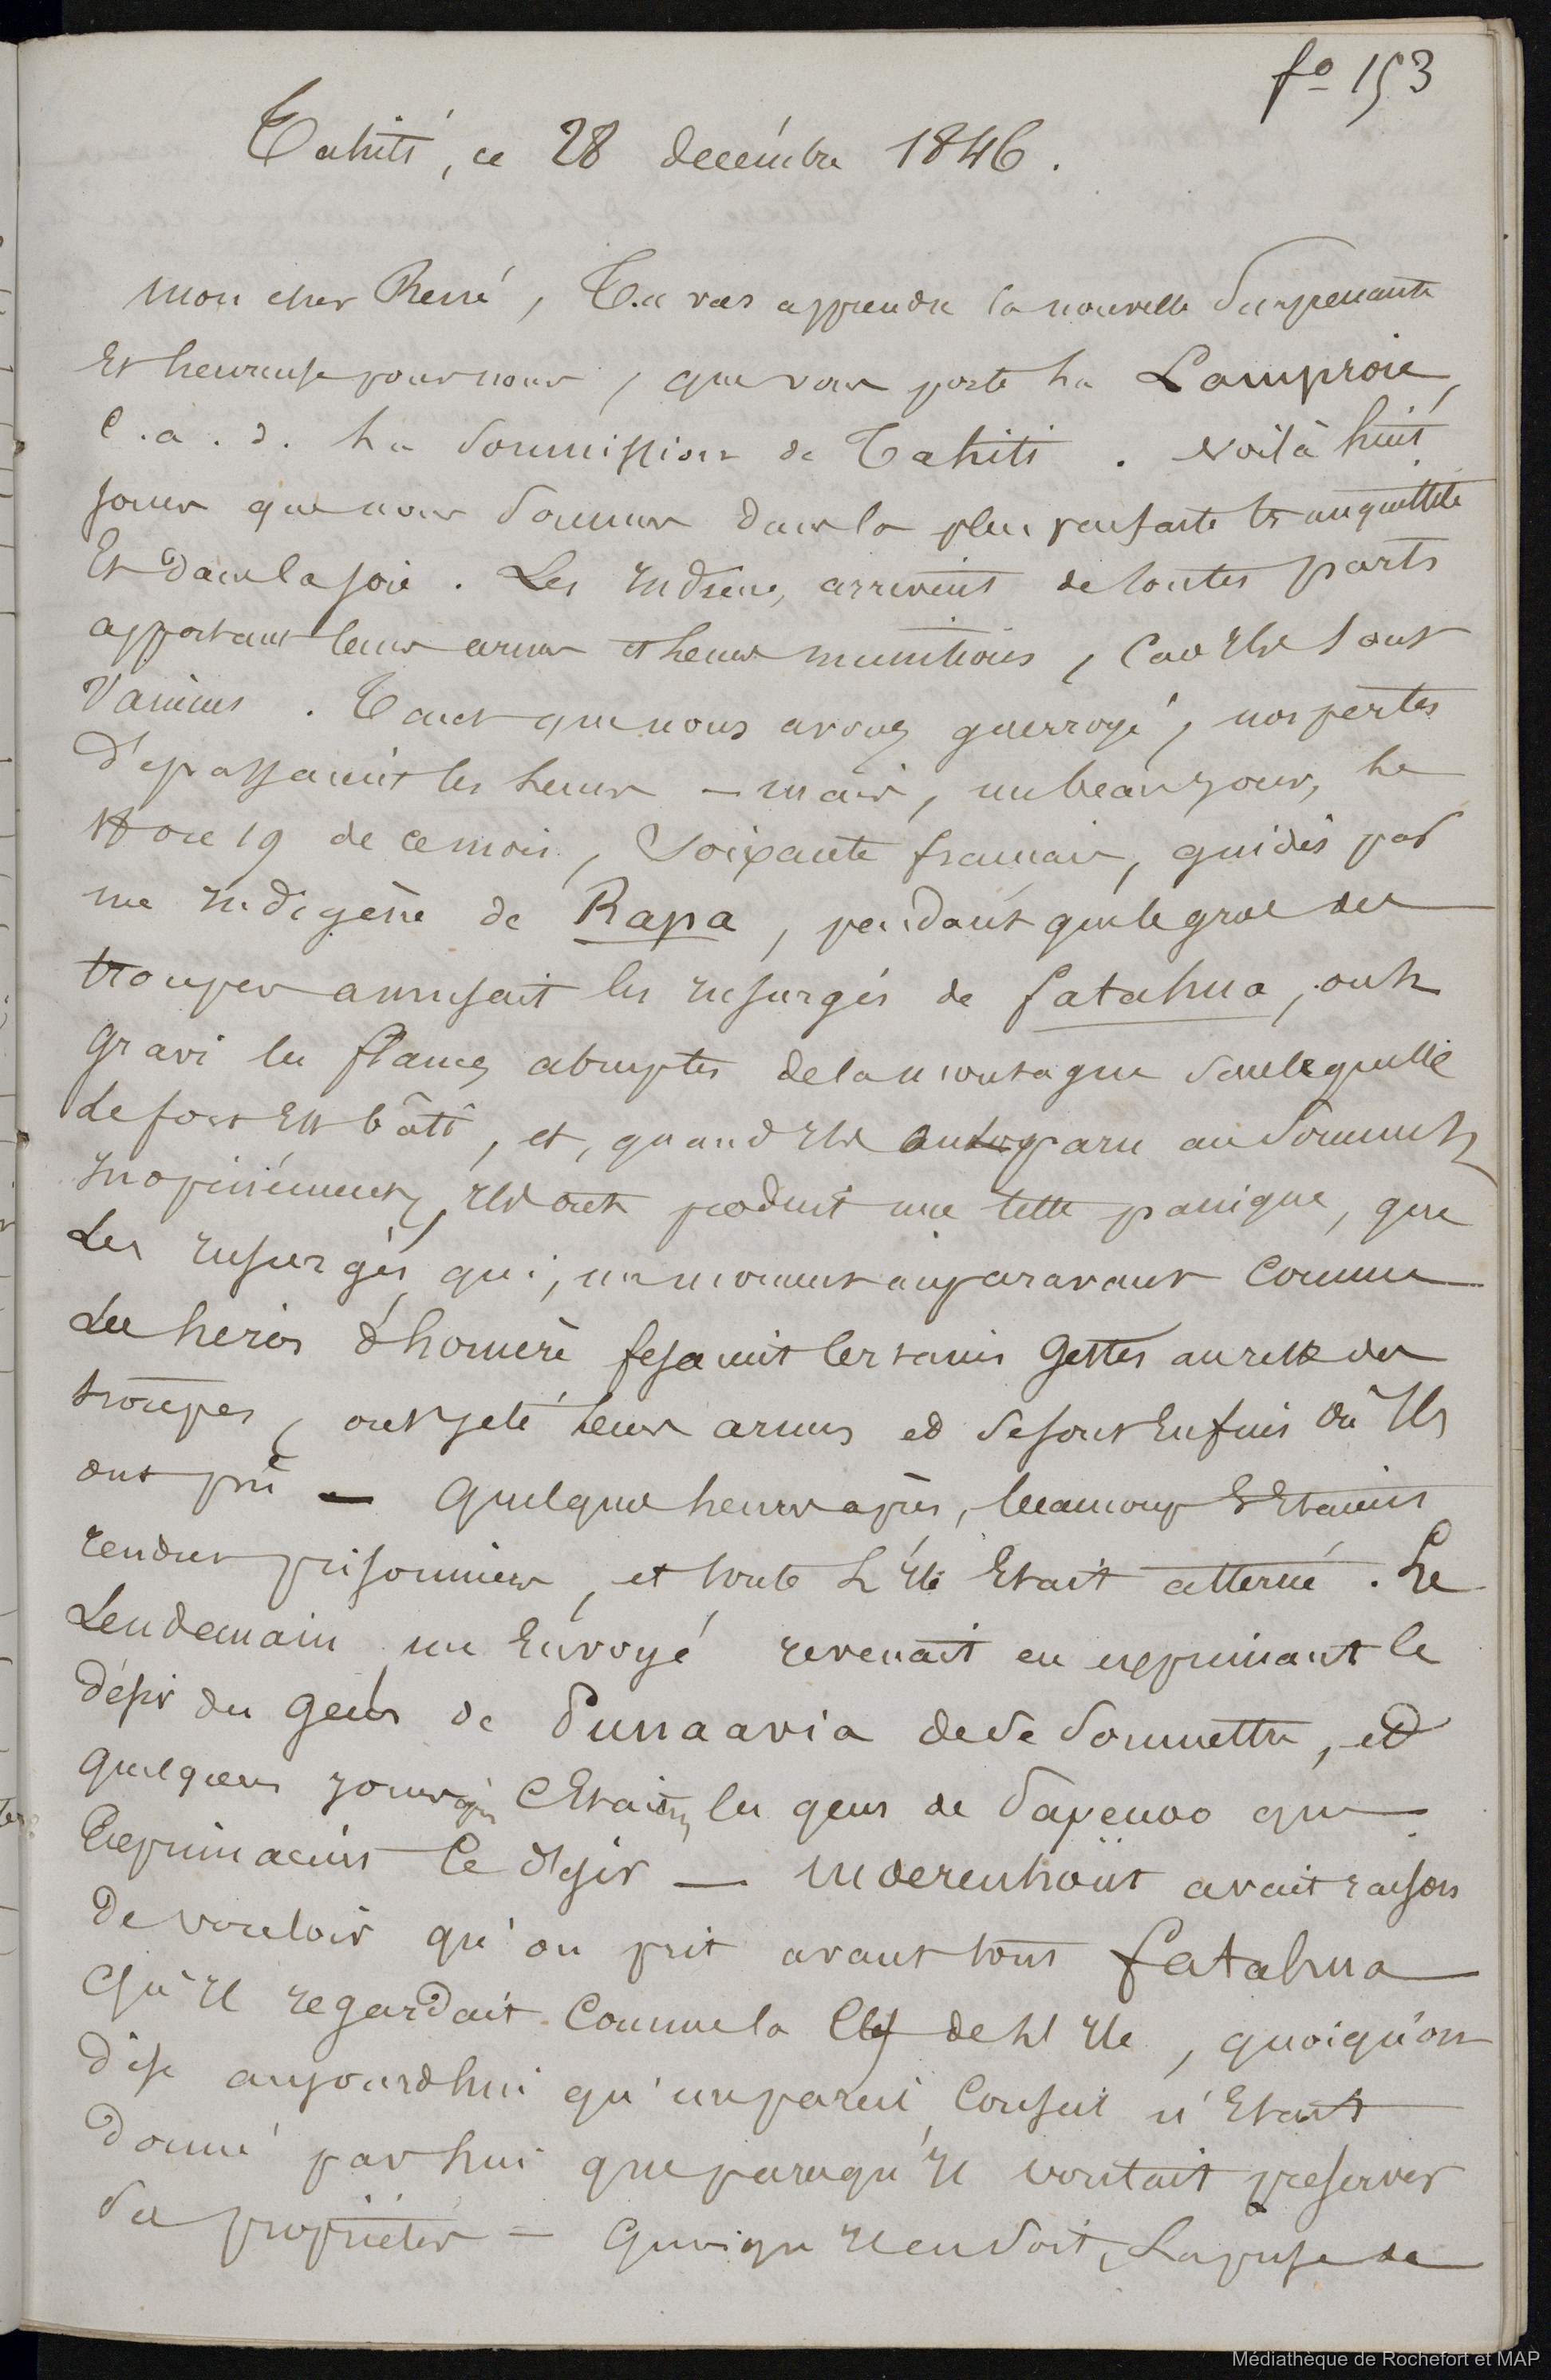 fo 153
Tahiti, ce 28 decémbre 1846.
mon cher René, Tu vas apprendre la nouvelle surprenante
Et heureuse pour nous, que vous porte la Lamproie,
C.a.d. la soumission de Tahiti. Voilà huit
jours que nous sommes dans la plus parfaite tranquillité
Et dans la joie. Les Indiens, arrivent de toutes parts
apportant leurs armes et leurs munitions, car Ils sont
Vaincus. Tant que nous avons guerroyé, nos pertes
dépassaient les leurs — mais, un beau jour, le
19 de ce mois, Soixante francais, guidés par
un Indigène de Rapa, pendant que le gros des
troupes amusait les Insurgés de fatahua, ont
gravi les flancs abruptes de la montagne sur laquelle
Le fort Est bâti, et, quand Ils ont paru au sommet
Inopinément, Ils ont produit une telle panique, que
Les Insurgés qui, un moment auparavant comme
Les heros d'homère fesaient certains gestes au nez des
troupes, ont jeté leurs armes et se sont Enfuis où Ils
ont pu — Quelques heures après, beaucoup s'Etaient
rendus prisonniers, et toute L'Ile Etait atterrée. Le
Lendemain un Envoyé revenait en exprimant le
désir des gens de Punaavia de se soumettre, et
quelques jours après C'Etaient les gens de Papenoo qui
Exprimaient ce désir — Moerenhoüt avait raison
De vouloir qu'on prit avant tout fatahua
Qu'Il regardait Comme la Clef de L'Ile, quoiqu'on
dise aujourdhui qu'un pareil Conseil n'Etait
donné par lui que parcequ'Il voulait préserver
ses propriétés — Quoiqu'Il en soit, La prise de
Médiathèque de Rochefort et MAP